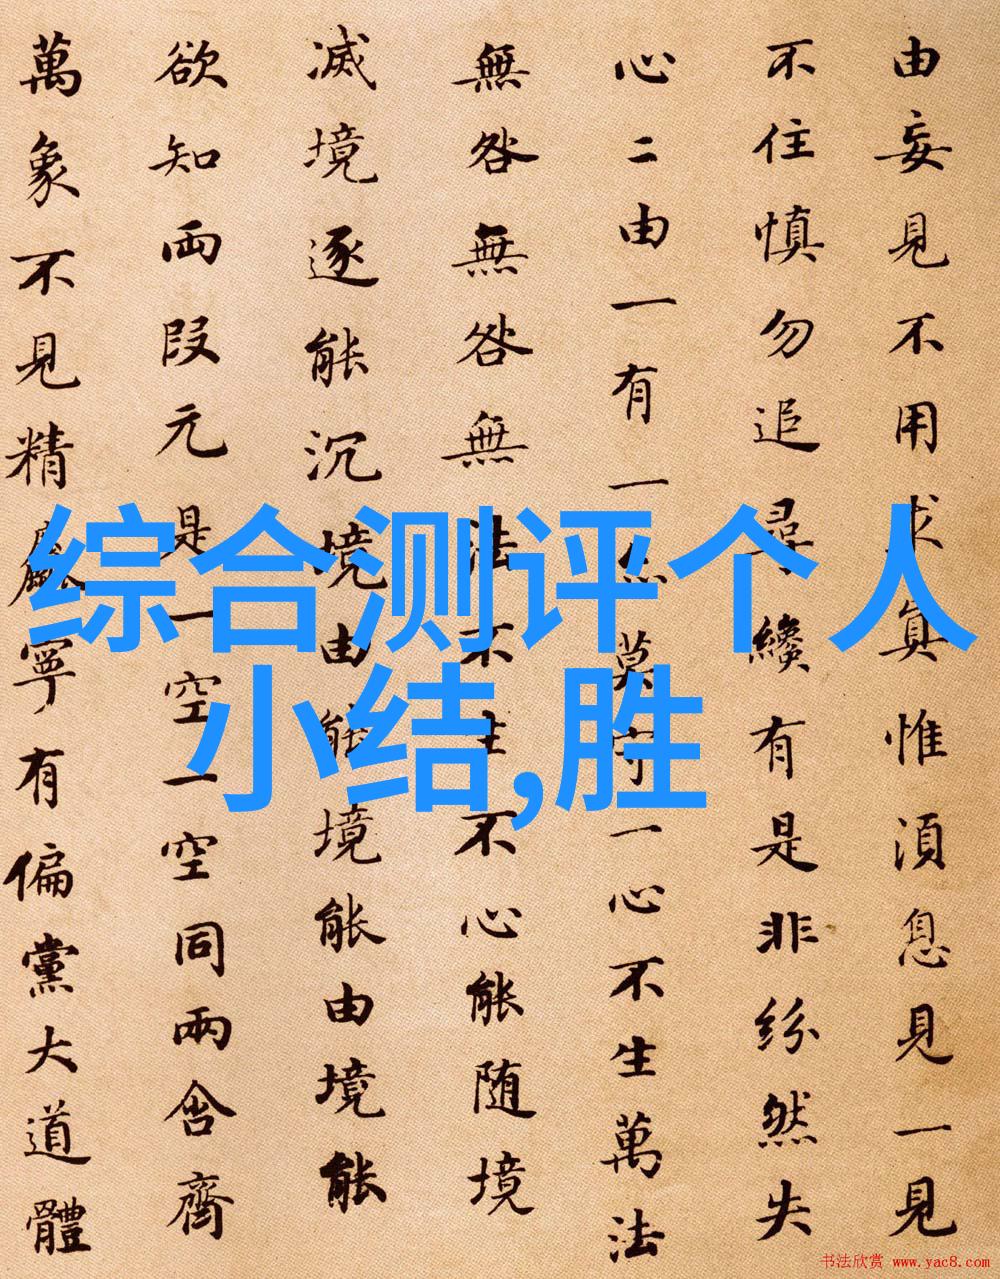 由妄見不用求真惟湏息見一見
不住慎勿追尋纔有是非紛然失
心二由一有一亦莫守一心不生萬法
無咎無咎無法不生不心能随境
滅境逐能沉境由能境能由境能
欲知兩段元是一空一空同兩含齊
萬象不見精麤寧有偏黨大道體
综合测评个人
小结,胜
书法欣赏 www.yac8.com